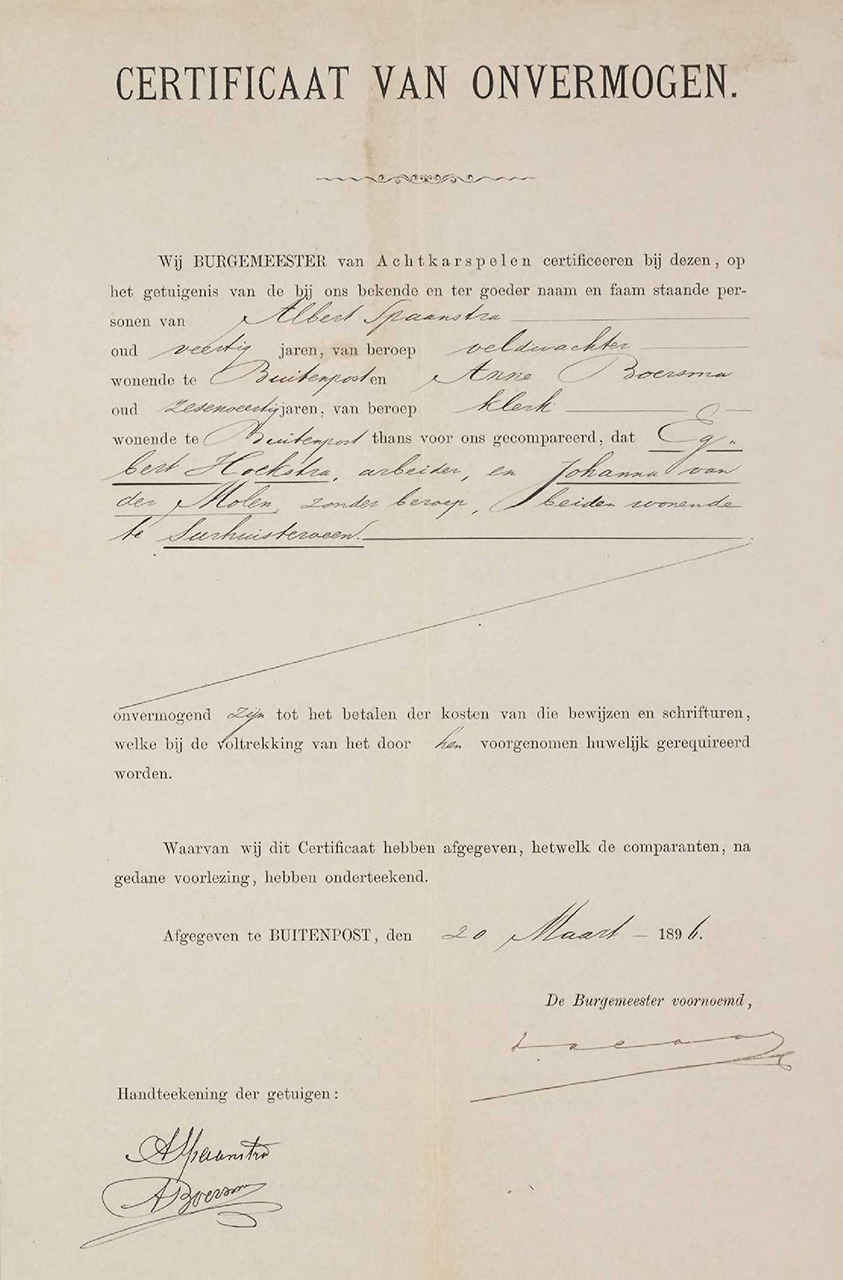 CERTIFICAAT VAN ONVERMOGEN.
Wij BURGEMEESTER van Achtkarspelen certificeeren bij dezen, op
het getuigenis van de bij ons bekende en ter goeder naam en faam staande per-
sonen van Albert Spaanstra
oud veertig jaren, van beroep veldwachter
wonende te Buitenpost en Anne Boersma
oud zesenveertig jaren, van beroep klerk
wonende te Buitenpost thans voor ons gecompareerd, dat Eg-
bert Hoekstra, arbeider, en Johanna van
der Molen, zonder beroep, beiden wonende
te Surhuisterveen.
onvermogend zijn tot het betalen der kosten van die bewijzen en schrifturen,
welke bij de voltrekking van het door hen voorgenomen huwelijk gerequireerd
worden.
Waarvan wij dit Certificaat hebben afgegeven, hetwelk de comparanten, na
gedane voorlezing, hebben onderteekend.
Afgegeven te BUITENPOST, den 20 Maart – 1896.
De Burgemeester voornoemd,
Handteekening der getuigen:
A Spaanstra
A Boersma